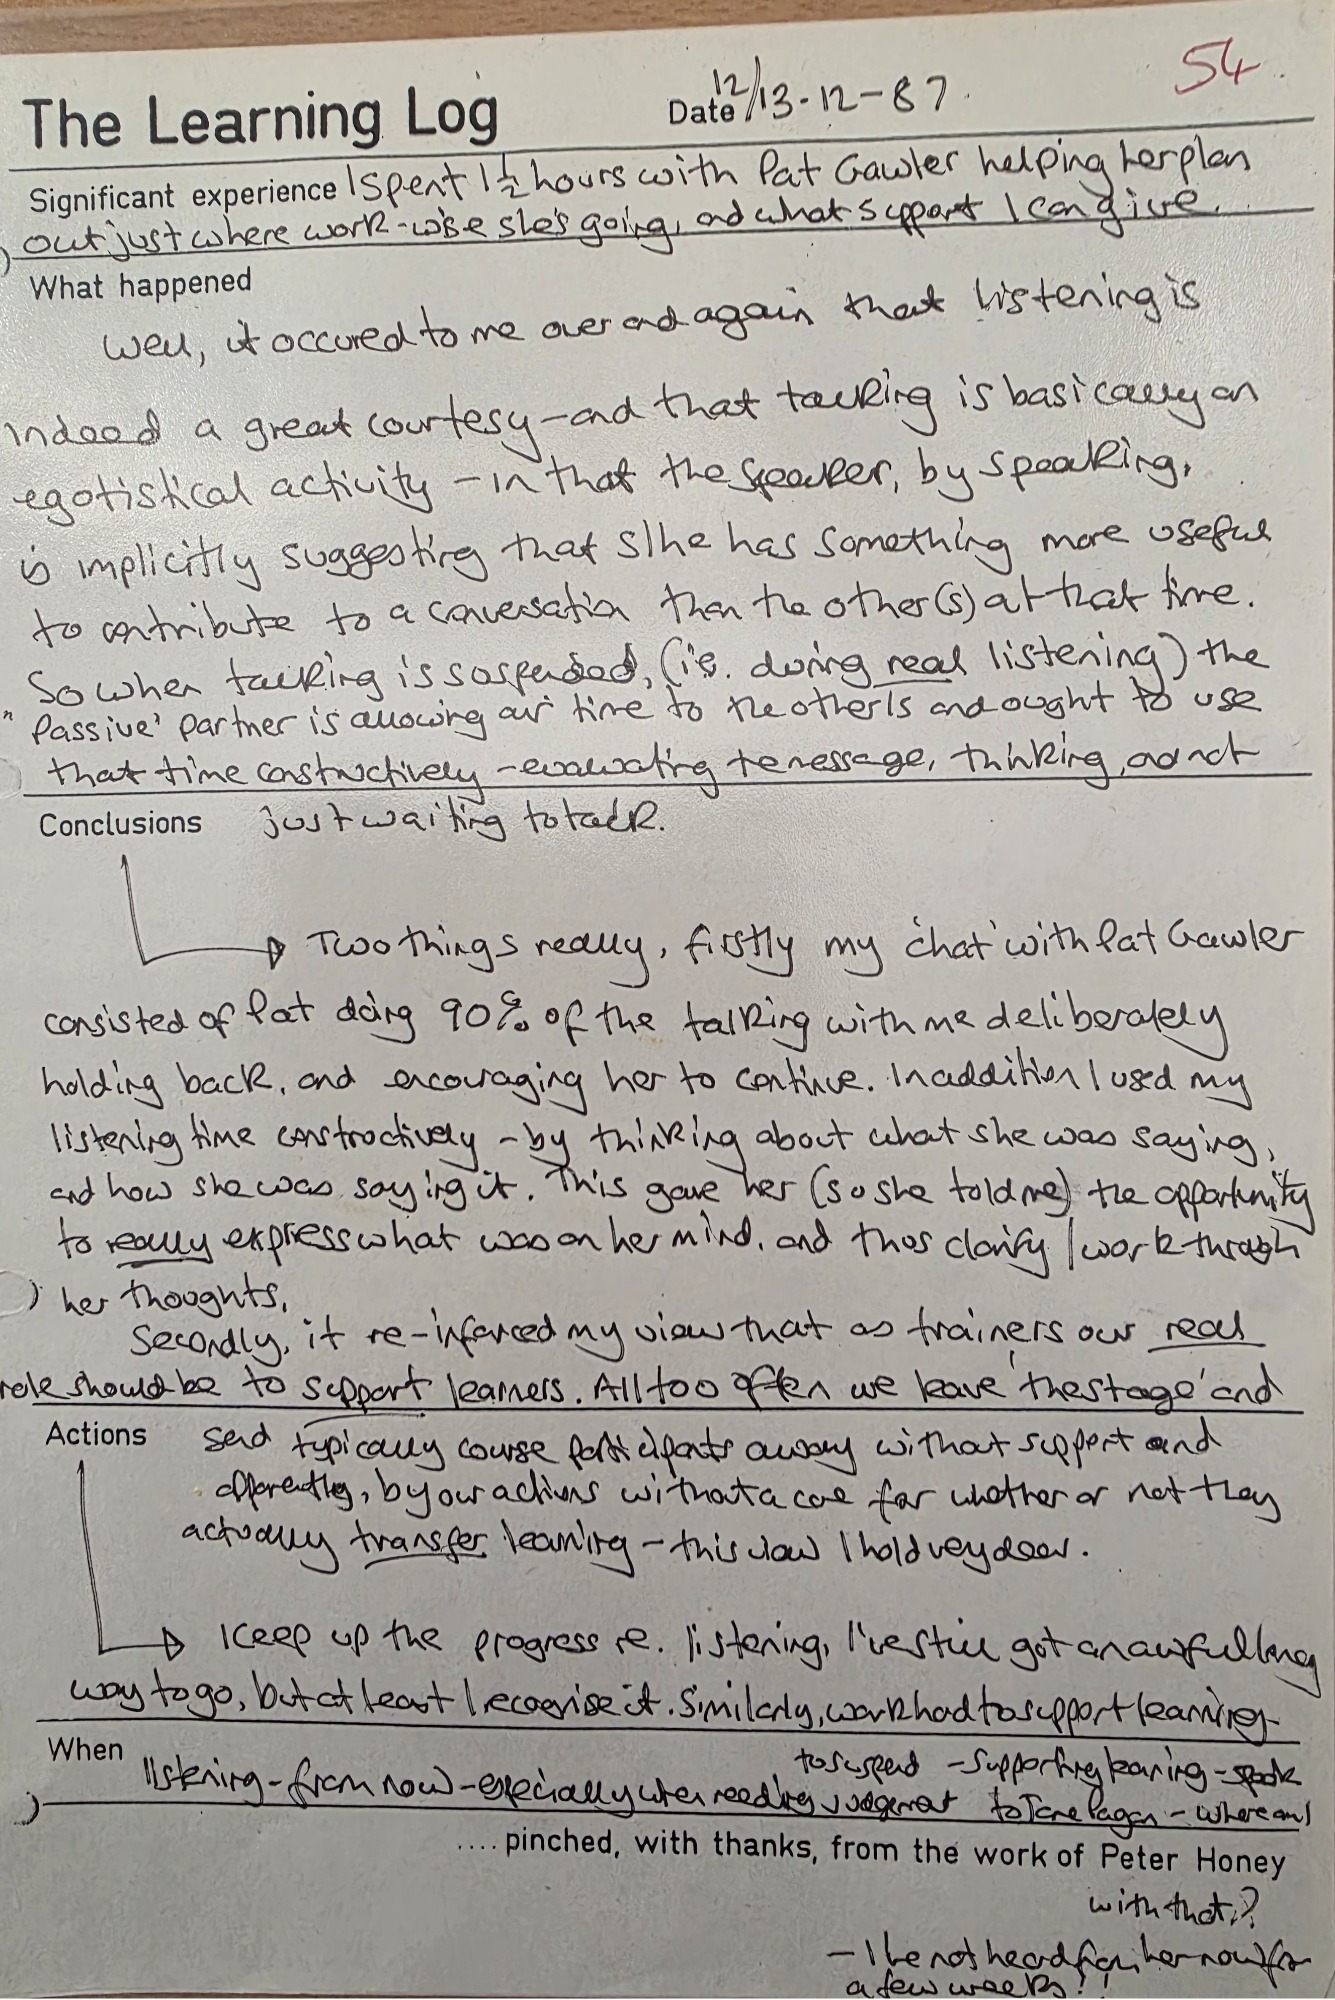 54.
The Learning Log
Date 12/13-12-87.
Significant experience I spent 1½ hours with Pat Gawler helping her plan
out just where work-wise she's going, and what support I can give.
What happened
Well, it occured to me over and again that listening is
indeed a great courtesy - and that talking is basically an
egotistical activity - in that the speaker, by speaking,
is implicitly suggesting that s/he has something more useful
to contribute to a conversation than the other(s) at that time.
So when talking is suspended, (i.e. during real listening) the
"Passive' partner is allowing air time to the other/s and ought to use
that time constructively - evaluating the message, thinking, and not
Conclusions just waiting to talk.
Two things really, firstly my 'chat' with Pat Gawler
consisted of Pat doing 90% of the talking with me deliberately
holding back, and encouraging her to continue. In addition I used my
listening time constructively - by thinking about what she was saying,
and how she was saying it. This gave her (so she told me) the opportunity
to really express what was on her mind, and thus clarify / work through
her thoughts.
Secondly, it re-inforced my view that as trainers our real
role should be to support learners. All too often we leave 'the stage' and
Actions send typically course participants away without support and
apparently, by our actions without a care for whether or not they
actually transfer learning - this view I hold very dear.
Keep up the progress re. listening, I've still got an awful long
way to go, but at least I recognise it. Similarly, work hard to support learning
When listening - from now - especially when needing to suspend judgement - supporting learning - spoke
to Jane - where am I
.... pinched, with thanks, from the work of Peter Honey
with that?
- I've not heard from her now for
a few weeks!!